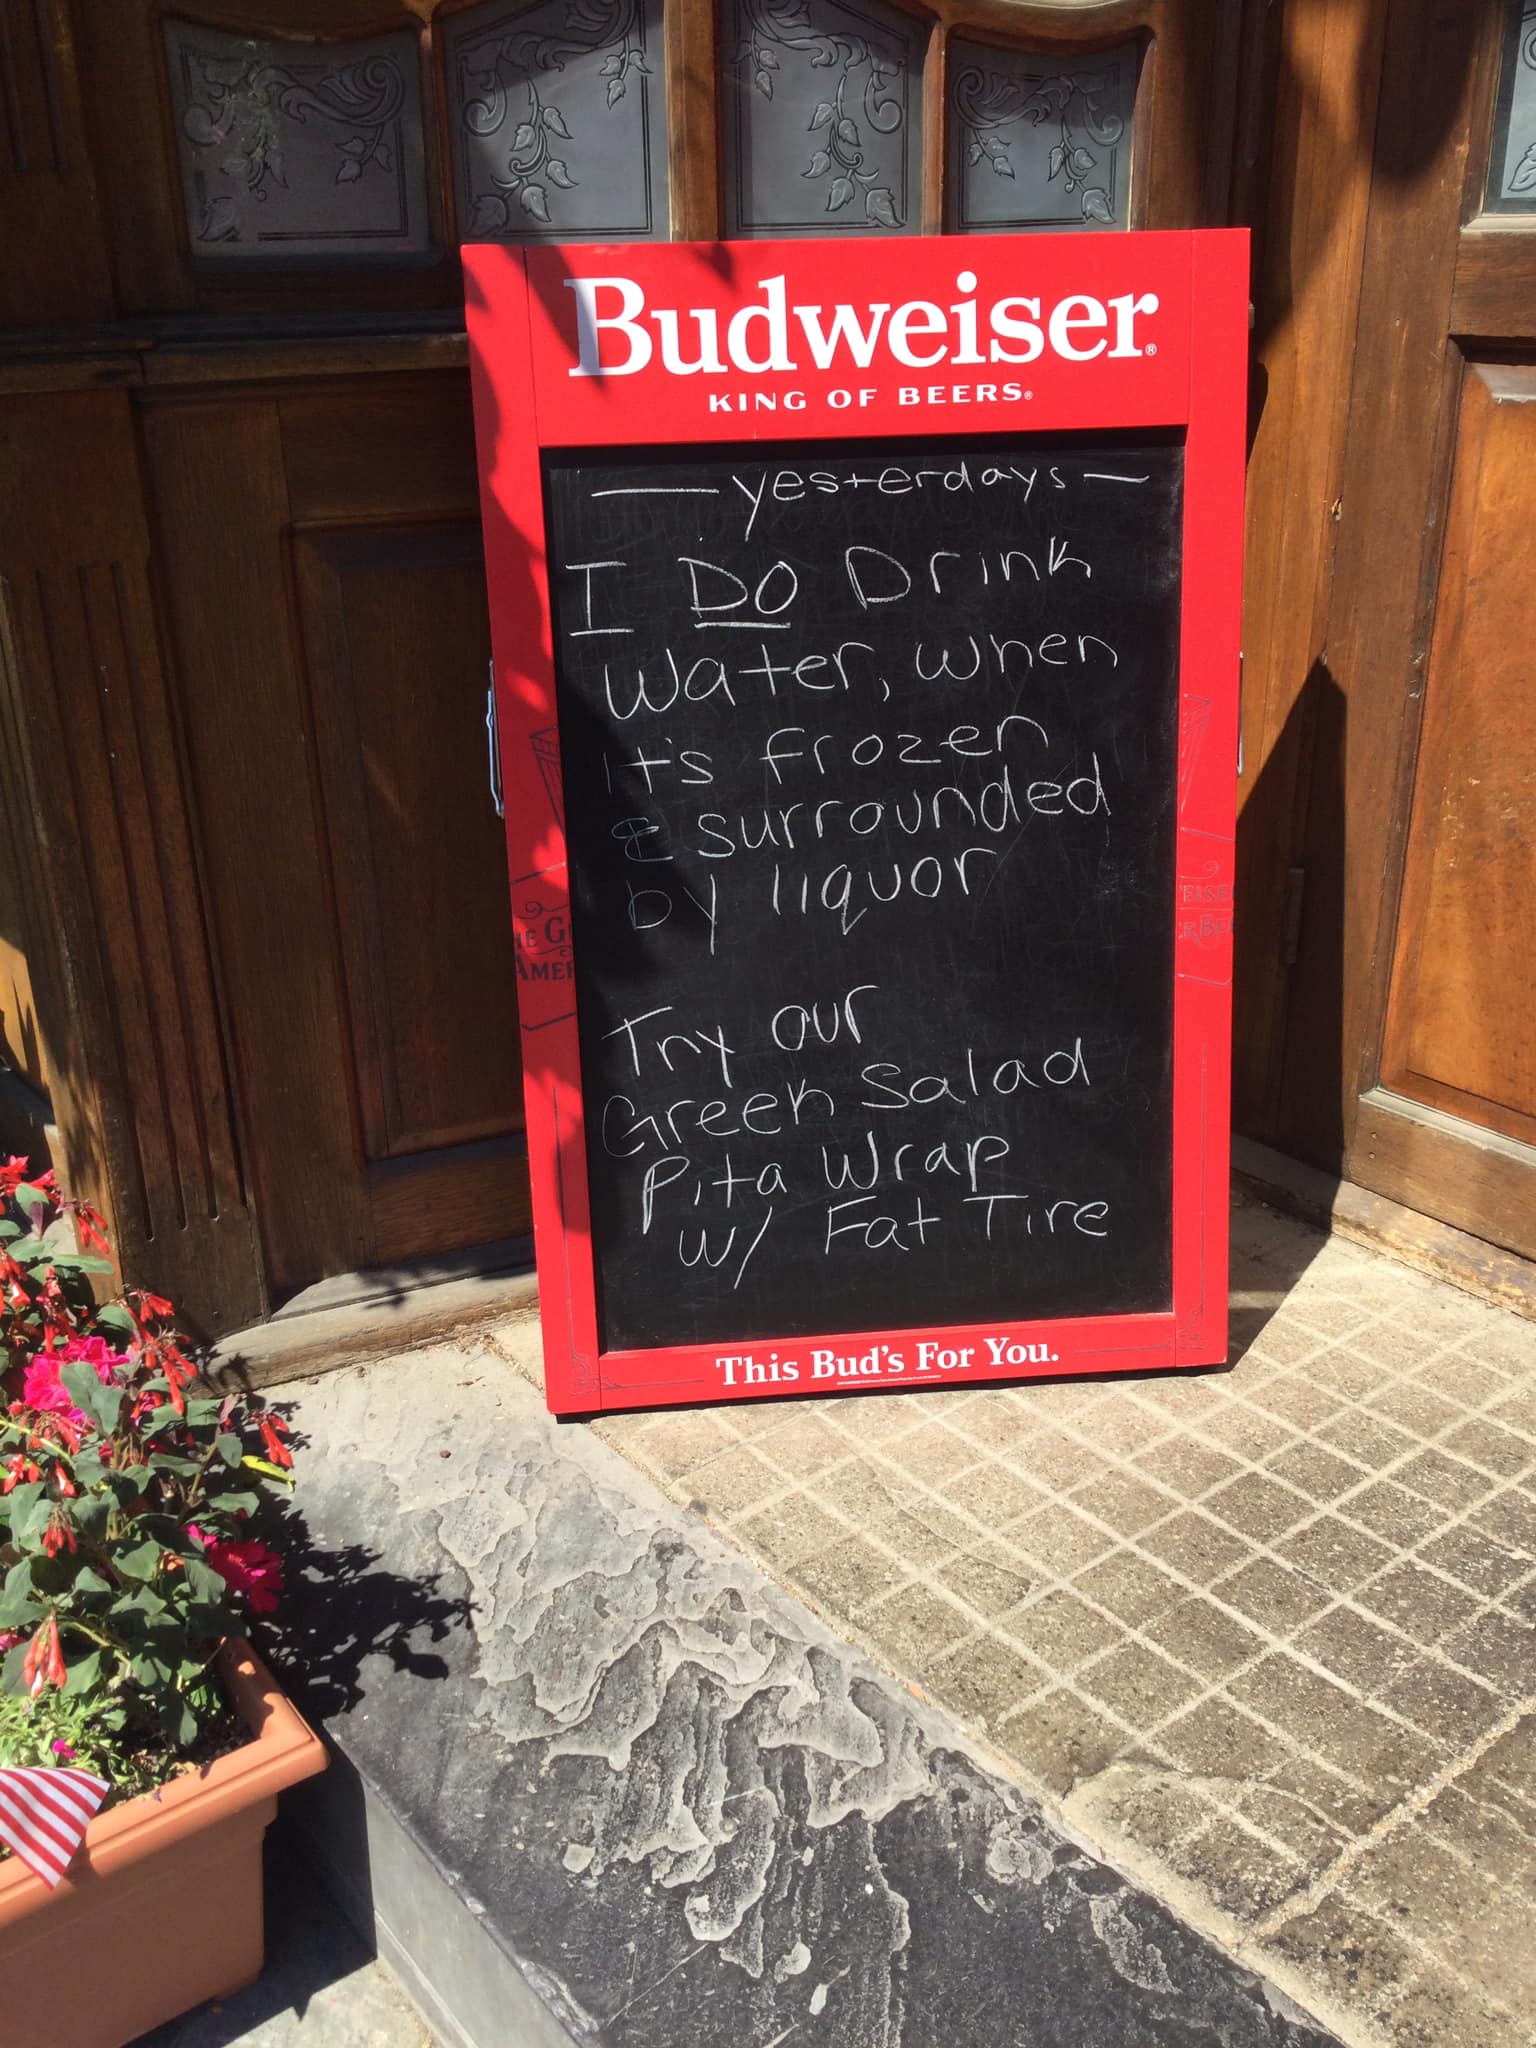 Budweiser®
KING OF BEERS®
— yesterdays —
I DO Drink
Water, when
it's frozen
& surrounded
by liquor
Try our
Green Salad
Pita Wrap
w/ Fat Tire
This Bud's For You.